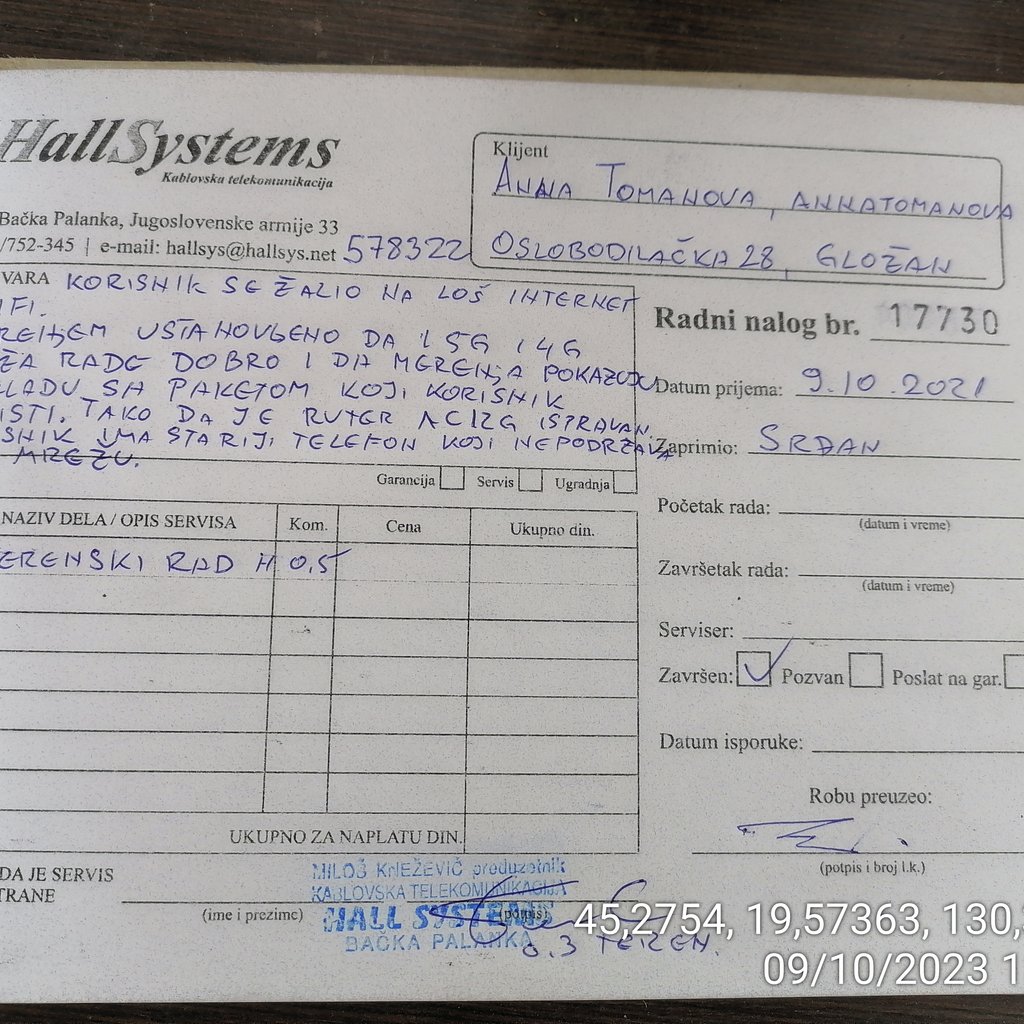 HallSystems
Kablovska telekomunikacija
Bačka Palanka, Jugoslovenske armije 33
/752-345 | e-mail: hallsys@hallsys.net 578322
Klijent
ANNA TOMANOVA, ANNATOMANOVA
OSLOBODILAČKA 28, GLOŽAN
VARA KORISNIK SE ŽALIO NA LOŠ INTERNET
IFI.
REЊEM USTANOVLJENO DA I 5G I 4G
ŽA RADE DOBRO I DA MERENJA POKAZUJU
LADU SA PAKETOM KOJI KORISNIK
ISTI. TAKO DA JE RUTER AC12G ISPRAVAN
SNIK IMA STARIJI TELEFON KOJI NEPODRŽAVA
MREŽU.
Radni nalog br. 17730
Datum prijema: 9.10.2021
Zaprimio: SRĐAN
Početak rada:
(datum i vreme)
Završetak rada:
(datum i vreme)
Serviser:
Završen: Pozvan Poslat na gar.
Datum isporuke:
Robu preuzeo:
(potpis i broj l.k.)
Garancija Servis Ugradnja
NAZIV DELA / OPIS SERVISA Kom. Cena Ukupno din.
ERENSKI RAD H 0.5
UKUPNO ZA NAPLATU DIN.
DA JE SERVIS
TRANE
(ime i prezime)
(potpis)
MILOŠ KNEŽEVIĆ preduzetnik
KABLOVSKA TELEKOMUNIKACIJA
HALL SYSTEMS
BAČKA PALANKA
0.3 TEREN.
45,2754, 19,57363, 130,
09/10/2023 1